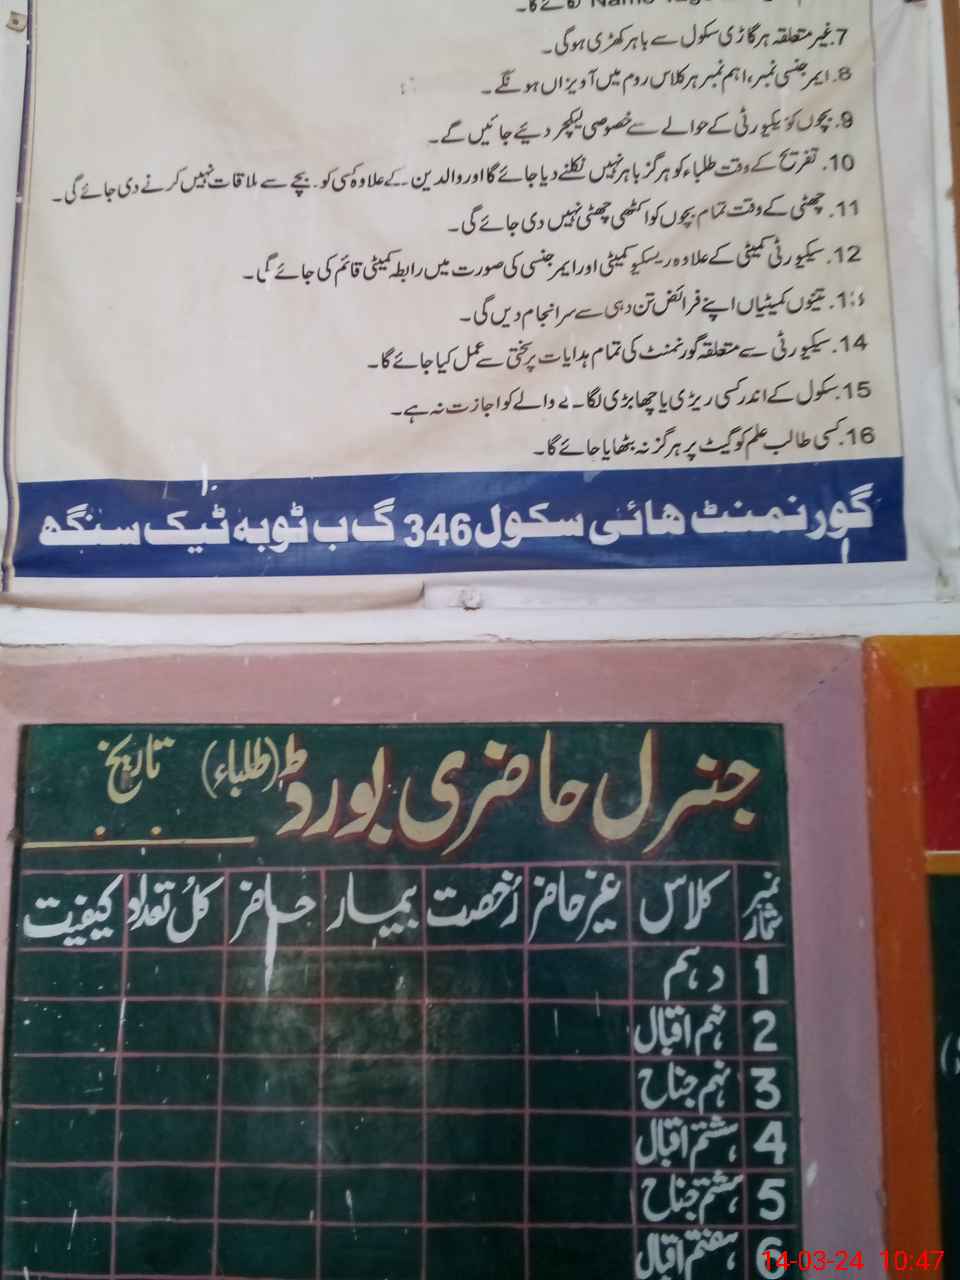 Name Tags
7. غیر متعلقہ ہر گاڑی سکول سے باہر کھڑی ہوگی۔
8. ایمرجنسی نمبر، اہم نمبر ہر کلاس روم میں آویزاں ہونگے۔
9. بچوں کو سیکیورٹی کے حوالے سے خصوصی لیکچر دئیے جائیں گے۔
10. تفریح کے وقت طلباء کو ہرگز باہر نہیں نکلنے دیا جائے گا اور والدین کے علاوہ کسی کو بچے سے ملاقات نہیں کرنے دی جائے گی۔
11. چھٹی کے وقت تمام بچوں کو اکٹھی چھٹی نہیں دی جائے گی۔
12. سیکیورٹی کمیٹی کے علاوہ ریسکیو کمیٹی اور ایمرجنسی کی صورت میں رابطہ کمیٹی قائم کی جائے گی۔
13. تینوں کمیٹیاں اپنے فرائض تن دہی سے سرانجام دیں گی۔
14. سیکیورٹی سے متعلقہ گورنمنٹ کی تمام ہدایات پر سختی سے عمل کیا جائے گا۔
15. سکول کے اندر کسی ریڑی یا چھابڑی لگانے والے کو اجازت نہ ہے۔
16. کسی طالب علم کو گیٹ پر ہرگز نہ بٹھایا جائے گا۔
گورنمنٹ ہائی سکول 346 گ ب ٹوبہ ٹیک سنگھ
جنرل حاضری بورڈ (طلباء) تاریخ
نمبر شمار کلاس غیر حاضر رُخصت بیمار حاضر کل تعداد کیفیت
1 دہم
2 نہم اقبال
3 نہم جناح
4 ہشتم اقبال
5 ہشتم جناح
6 ہفتم اقبال
14-03-24 10:47